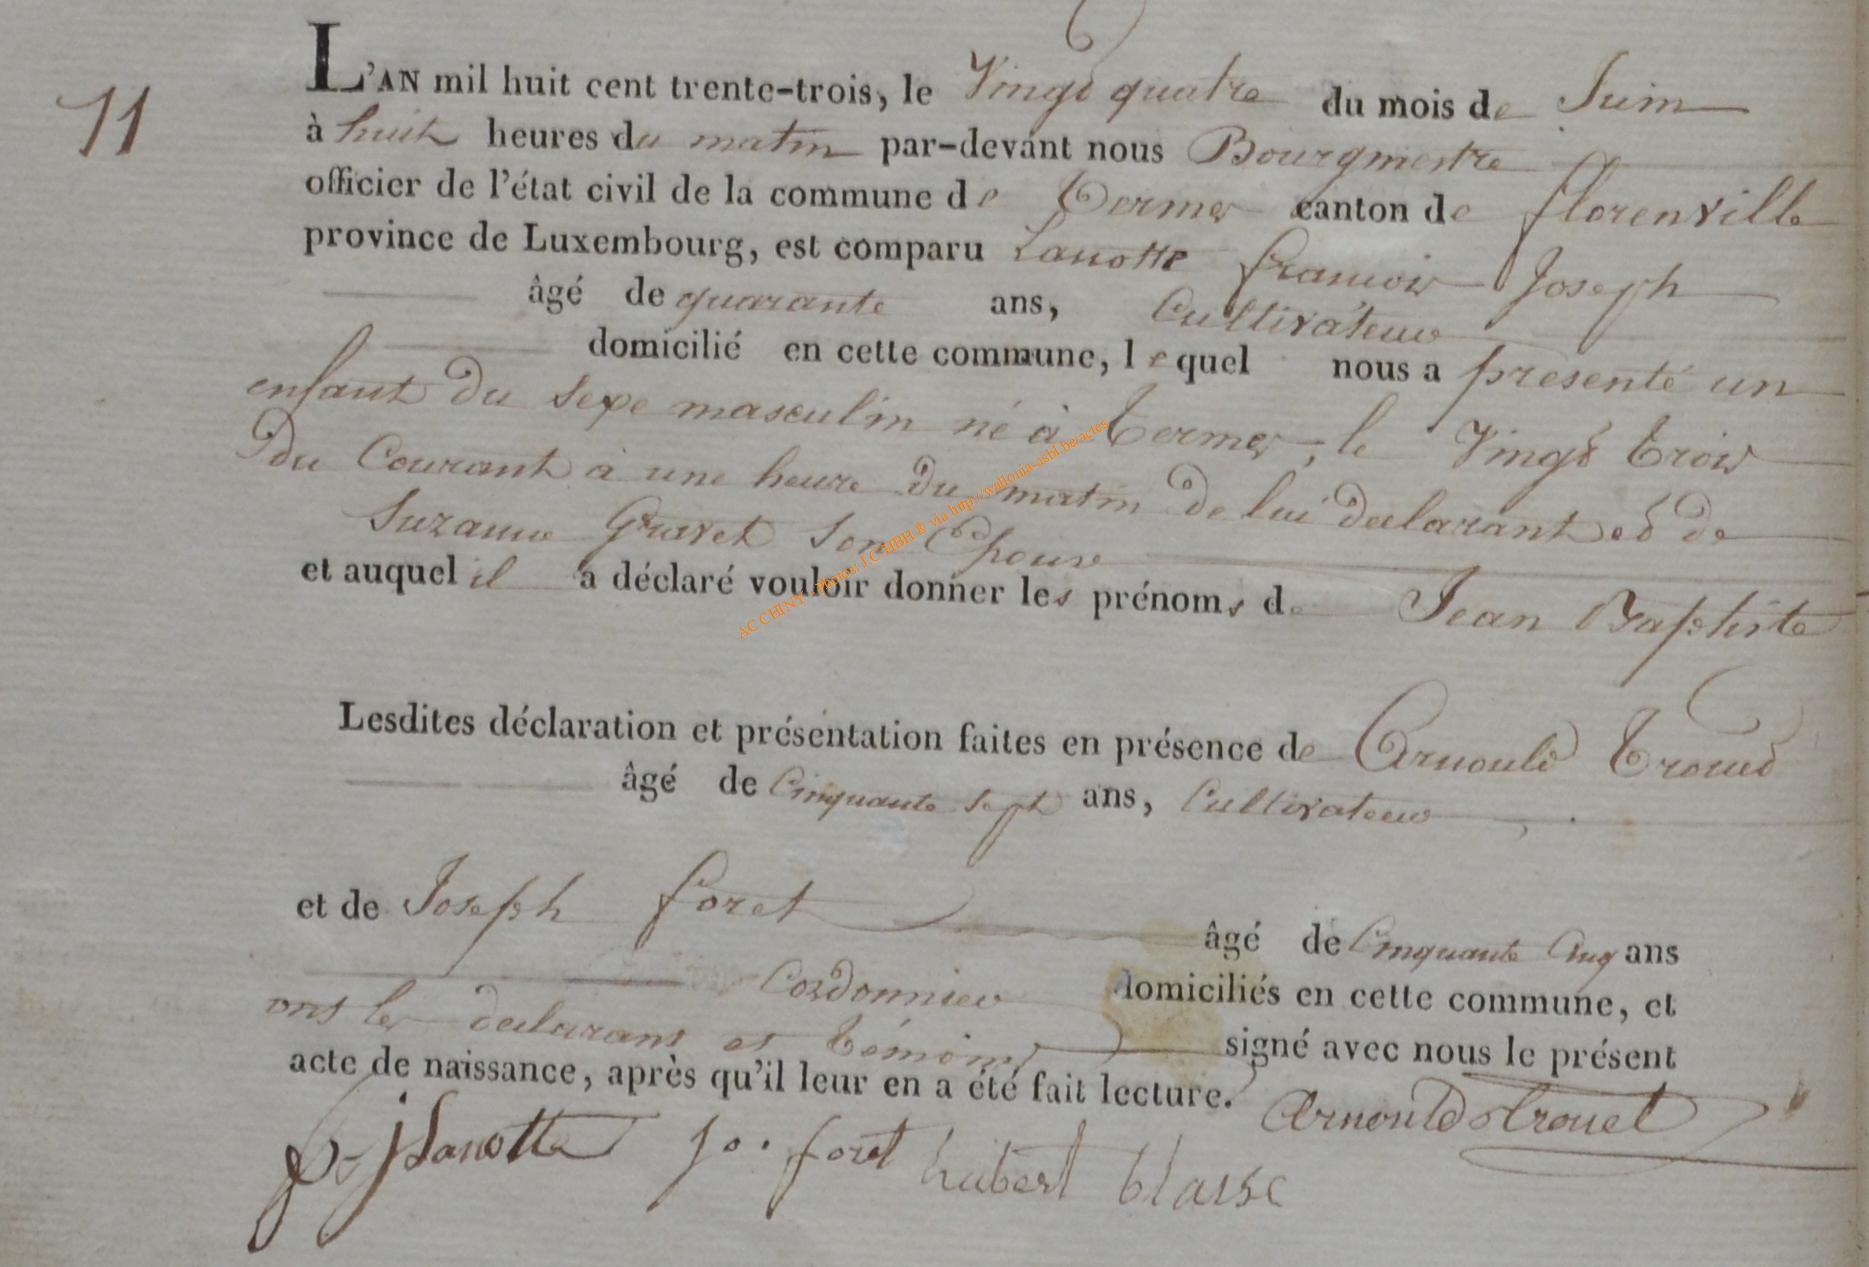 11
L'AN mil huit cent trente-trois, le Vingt quatre du mois de Juin
à huit heures du matin par-devant nous Bourgmestre
officier de l'état civil de la commune de Termes canton de florenville
province de Luxembourg, est comparu Lanotte francois Joseph
âgé de quarante ans, Cultivateur
domicilié en cette commune, lequel nous a presenté un
enfant du sexe masculin né à Termes, le Vingt trois
du Courant à une heure du matin de lui declarant et de
Suzanne Gravet Son Epouse
et auquel il a déclaré vouloir donner les prénoms de Jean Baptiste
Lesdites déclaration et présentation faites en présence de Arnould Trouet
âgé de Cinquante Sept ans, Cultivateur
et de Joseph foret âgé de Cinquante Cinq ans
Cordonnier domiciliés en cette commune, et
ont les declarans et témoins signé avec nous le présent
acte de naissance, après qu'il leur en a été fait lecture.
f. j Lanotte jo. foret hubert blaise Arnould Trouet
AC CHINY - Photos J.C HBH ® via http://wallonia-asbl.be/actes